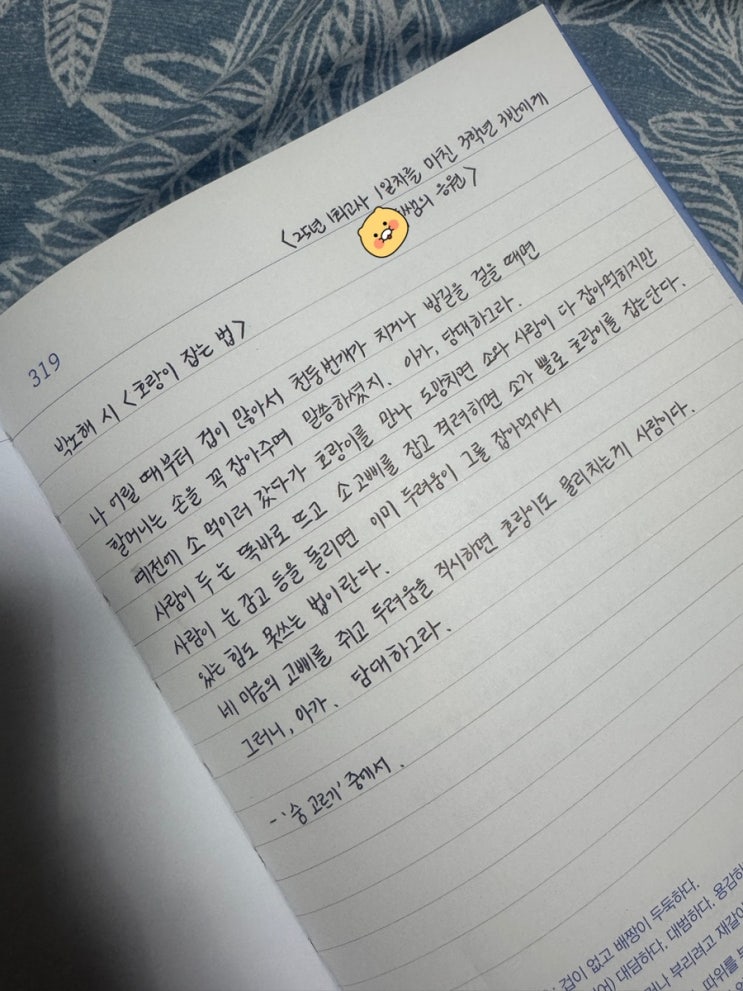 <25년 1회고사 1일차를 마친 3학년 3반에게
쌤의 응원>
319
박노해 시 <호랑이 잡는 법>
나 어릴 때부터 겁이 많아서 천둥번개가 치거나 밤길을 걸을 때면
할머니는 손을 꼭 잡아주며 말씀하셨지. 아가, 담대하그라.
예전에 소 먹이러 갔다가 호랑이를 만나 도망치면 소와 사람이 다 잡아먹히지만
사람이 두 눈 똑바로 뜨고 소고삐를 잡고 격려하면 소가 뿔로 호랑이를 잡는단다.
사람이 눈 감고 등을 돌리면 이미 두려움이 그를 잡아먹어서
있는 힘도 못쓰는 법이란다.
네 마음의 고삐를 쥐고 두려움을 직시하면 호랑이도 물리치는게 사람이다.
그러니, 아가. 담대하그라.
-'숨 고르기' 중에서.
겁이 없고 배짱이 두둑하다.
대담하다. 대범하다. 용감하
나 부리려고 재갈이
따위를